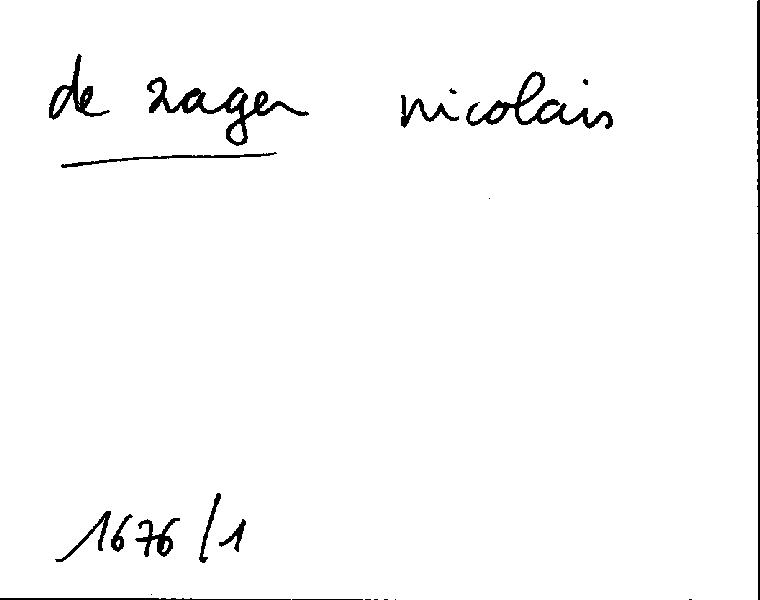 de zager nicolais
1676/1